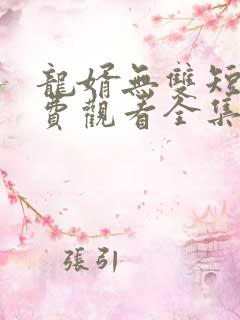 龍婿無雙短
費觀看全集
張引